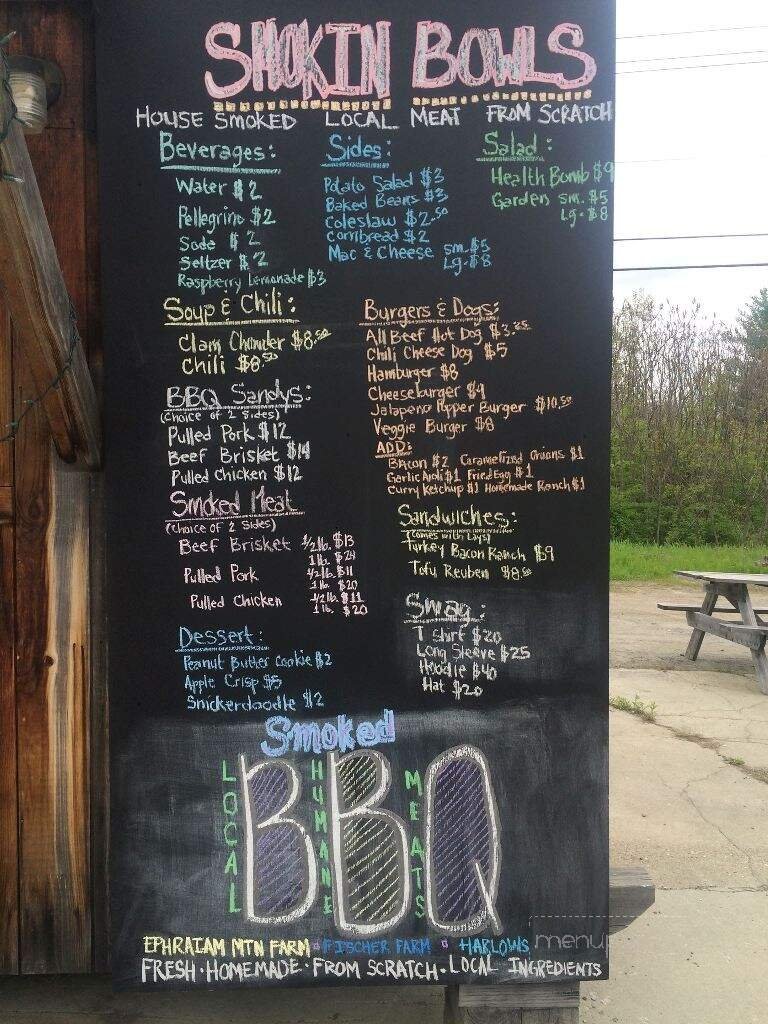 SMOKIN BOWLS
HOUSE SMOKED LOCAL MEAT FROM SCRATCH
Beverages:
Water $2
Pellegrino $2
Soda $2
Seltzer $2
Raspberry Lemonade $3
Sides:
Potato Salad $3
Baked Beans $3
Coleslaw $2.50
Cornbread $2
Mac & Cheese sm. $5
Lg. $8
Salad:
Health Bomb $9
Garden sm. $5
Lg. $8
Soup & Chili:
Clam Chowder $8.50
Chili $8.50
BBQ Sandys:
(Choice of 2 Sides)
Pulled Pork $12
Beef Brisket $14
Pulled Chicken $12
Smoked Meat
(Choice of 2 Sides)
Beef Brisket 1/2 lb. $13
1 lb. $24
Pulled Pork 1/2 lb. $11
1 lb. $20
Pulled Chicken 1/2 lb. $11
1 lb. $20
Dessert:
Peanut Butter Cookie $2
Apple Crisp $5
Snickerdoodle $2
Burgers & Dogs:
All Beef Hot Dog $3.25
Chili Cheese Dog $5
Hamburger $8
Cheeseburger $9
Jalapeno Popper Burger $10.50
Veggie Burger $8
ADD:
Bacon $2 Caramelized Onions $1
Garlic Aioli $1 Fried Egg $1
Curry Ketchup $1 Homemade Ranch $1
Sandwiches:
(Comes with Lays)
Turkey Bacon Ranch $9
Tofu Reuben $8.50
Swag:
T shirt $20
Long Sleeve $25
Hoodie $40
Hat $20
Smoked
BBQ
LOCAL
HUMANE
MEATS
EPHRAIAM MTN FARM FISCHER FARM HARLOWS
FRESH · HOMEMADE · FROM SCRATCH · LOCAL INGREDIENTS